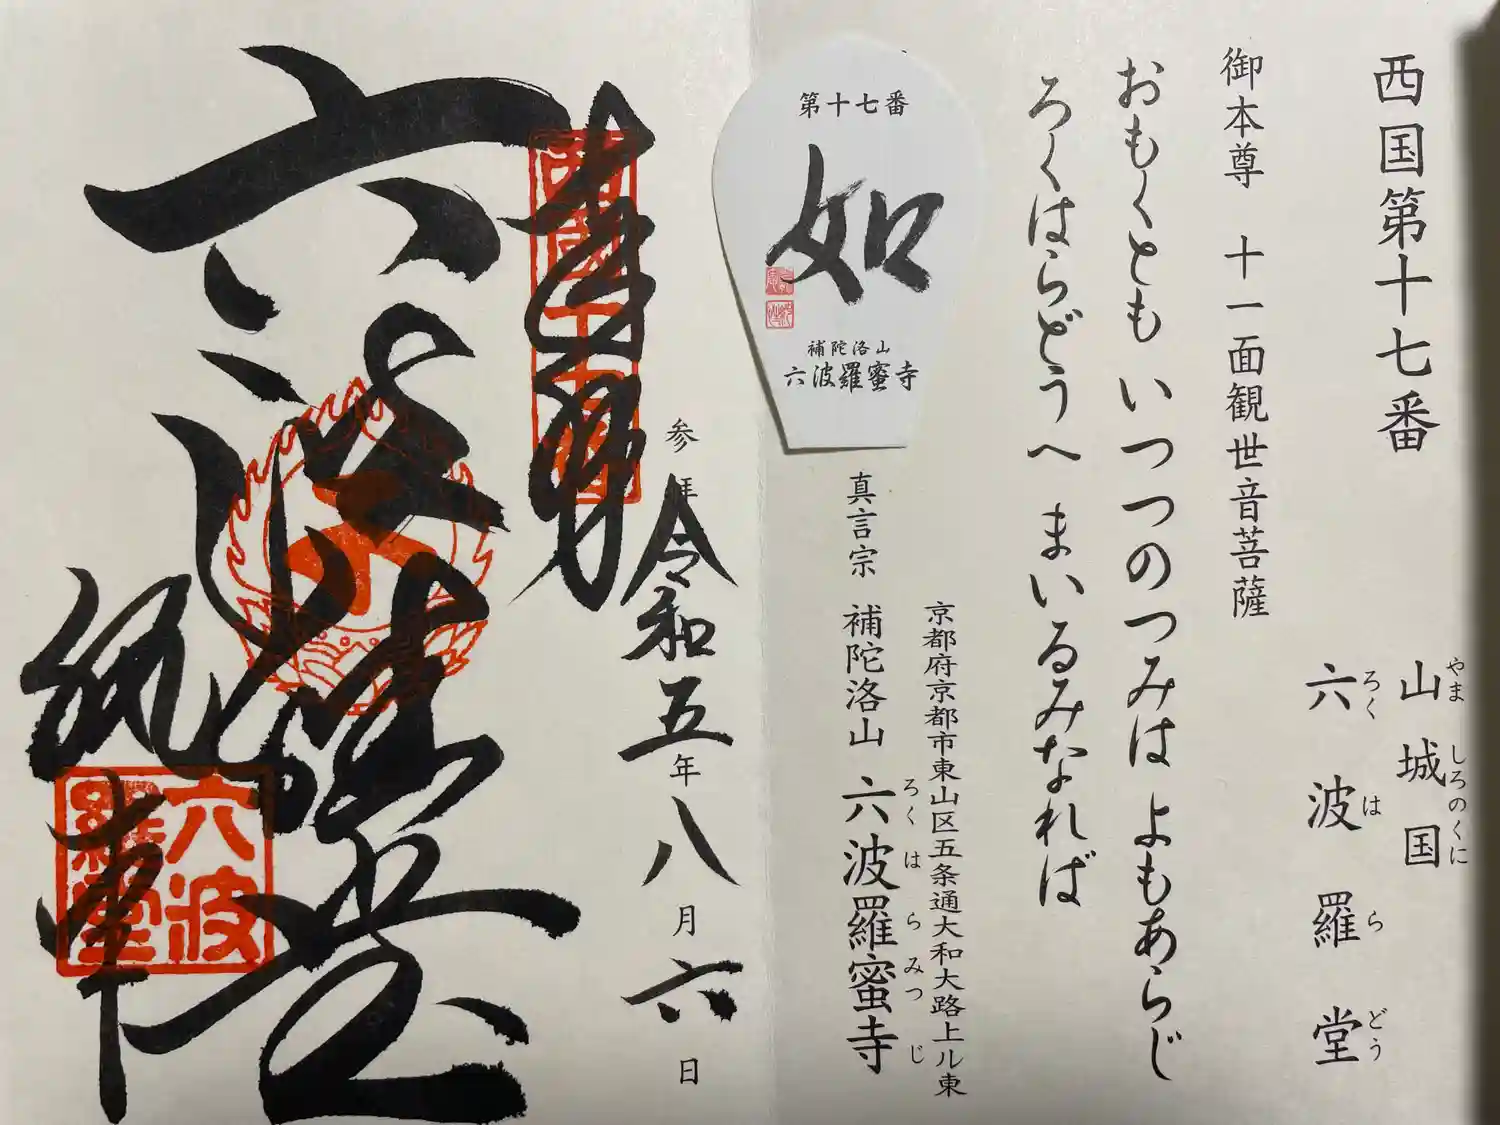 西国第十七番
山城国
やましろのくに
六波羅堂
ろくはらどう
御本尊 十一面観世音菩薩
おもくとも いつつのつみは よもあらじ
ろくはらどうへ まいるみなれば
第十七番
如
補陀洛山
六波羅蜜寺
京都府京都市東山区五条通大和大路上ル東
真言宗 補陀洛山 六波羅蜜寺
ろくはらみつじ
参拝 令和五年八月六日
奉拝
西国十七番
六波羅堂
六波羅堂